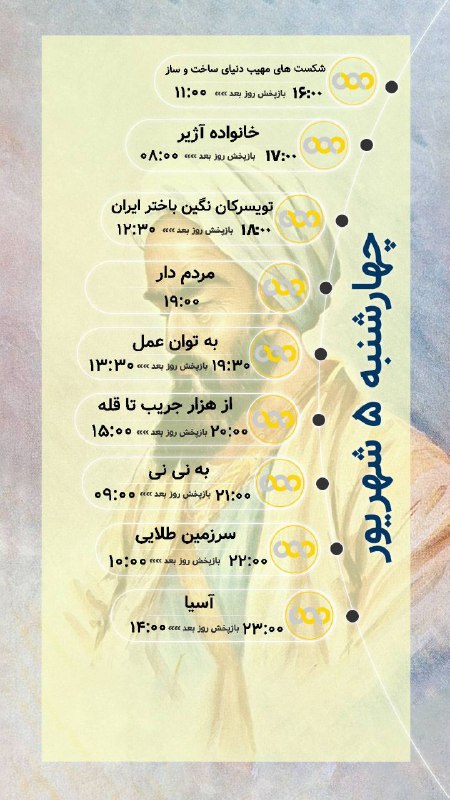 شکست های مهیب دنیای ساخت و ساز
۱۶:۰۰ بازپخش روز بعد »»» ۱۱:۰۰
خانواده آژیر
۱۷:۰۰ بازپخش روز بعد »»» ۰۸:۰۰
تویسرکان نگین باختر ایران
۱۸:۰۰ بازپخش روز بعد »»» ۱۲:۳۰
مردم دار
۱۹:۰۰
به توان عمل
۱۹:۳۰ بازپخش روز بعد »»» ۱۳:۳۰
از هزار جریب تا قله
۲۰:۰۰ بازپخش روز بعد »»» ۱۵:۰۰
به نی نی
۲۱:۰۰ بازپخش روز بعد »»» ۰۹:۰۰
سرزمین طلایی
۲۲:۰۰ بازپخش روز بعد »»» ۱۰:۰۰
آسیا
۲۳:۰۰ بازپخش روز بعد »»» ۱۴:۰۰
چهارشنبه ۵ شهریور